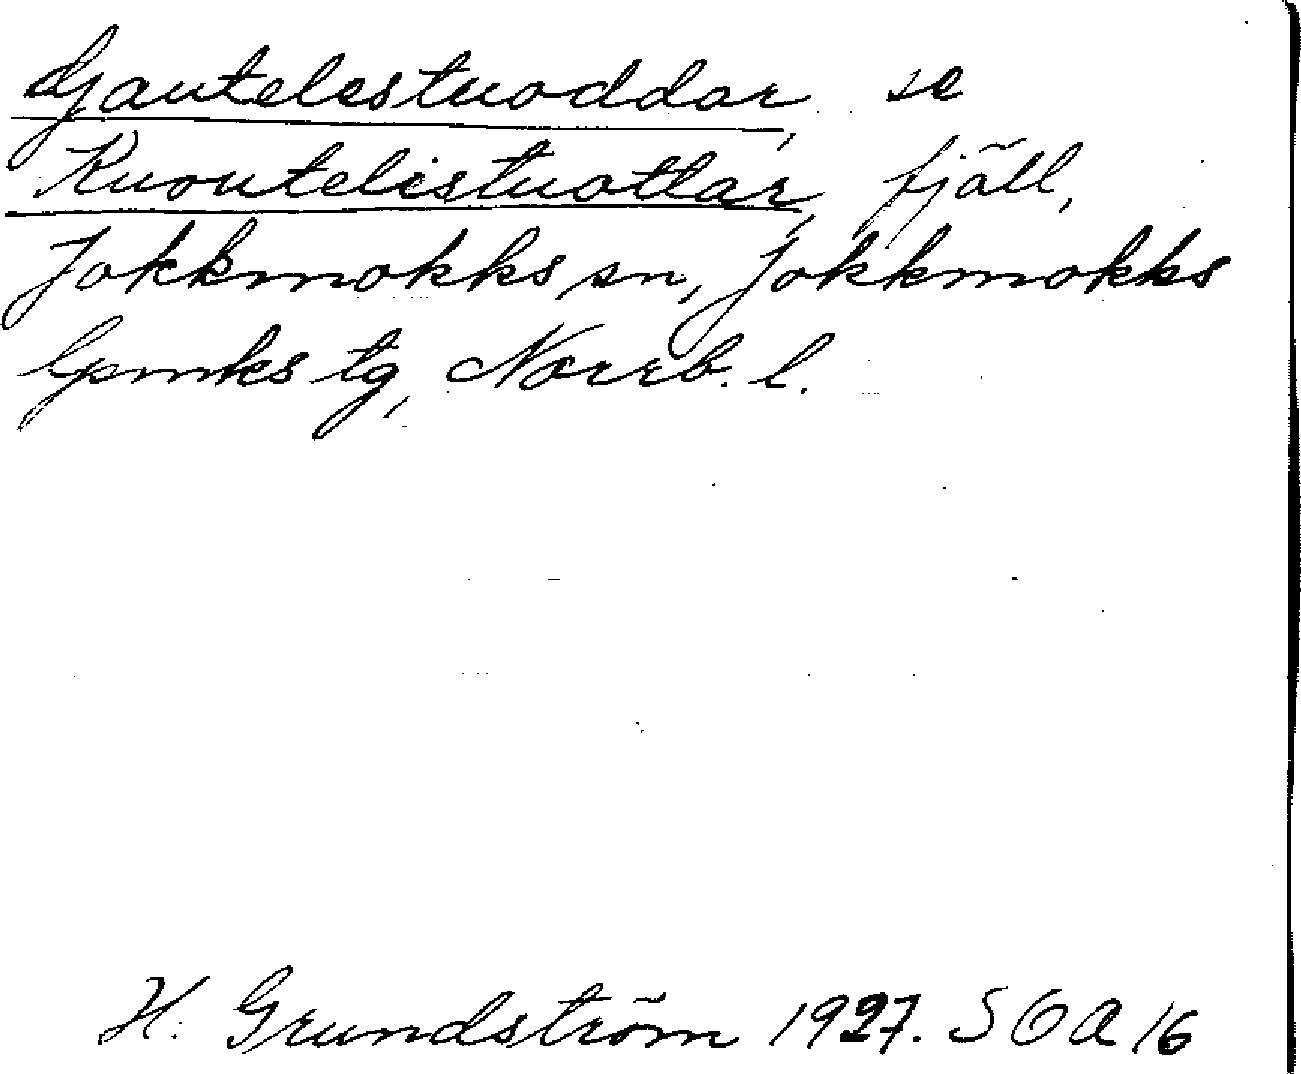 Gautelestuoddar, se
Kuoutelistuottar, fjäll,
Jokkmokks sn, Jokkmokks
lpmks tg, Norrb. l.
H. Grundström 1927. SOA 16